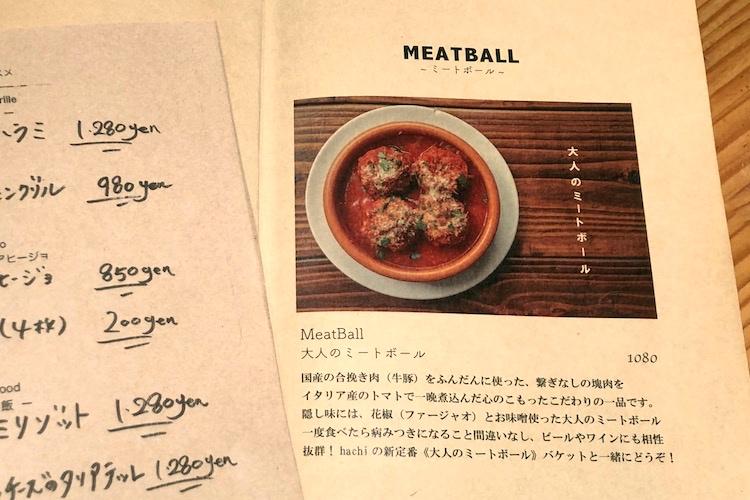 スメ
rille
ハラミ 1.280yen
ングリル 980yen
アヒージョ
ヒージョ 850yen
(4枚) 200yen
ood
飯
ミリゾット 1.280yen
チーズのタリアテッレ 1.280yen
MEATBALL
~ミートボール~
大人のミートボール
MeatBall
大人のミートボール 1080
国産の合挽き肉（牛豚）をふんだんに使った、繋ぎなしの塊肉を
イタリア産のトマトで一晩煮込んだ心のこもったこだわりの一品です。
隠し味には、花椒（ファージャオ）とお味噌使った大人のミートボール
一度食べたら病みつきになること間違いなし、ビールやワインにも相性
抜群！hachiの新定番《大人のミートボール》バケットと一緒にどうぞ！